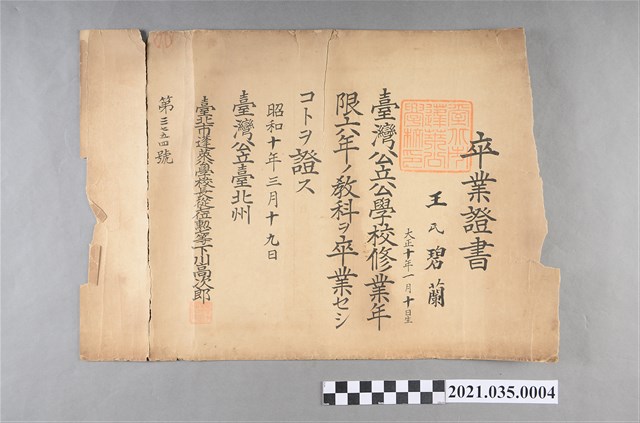 卒業證書
王氏碧蘭
大正十年一月十日生
臺灣公立公學校修業年
限六年ノ敎科ヲ卒業セシ
コトヲ證ス
昭和十年三月十九日
臺灣公立臺北州
臺北市蓬萊公學校長從七位勳七等下川高次郎
第三七五四號
2021.035.0004